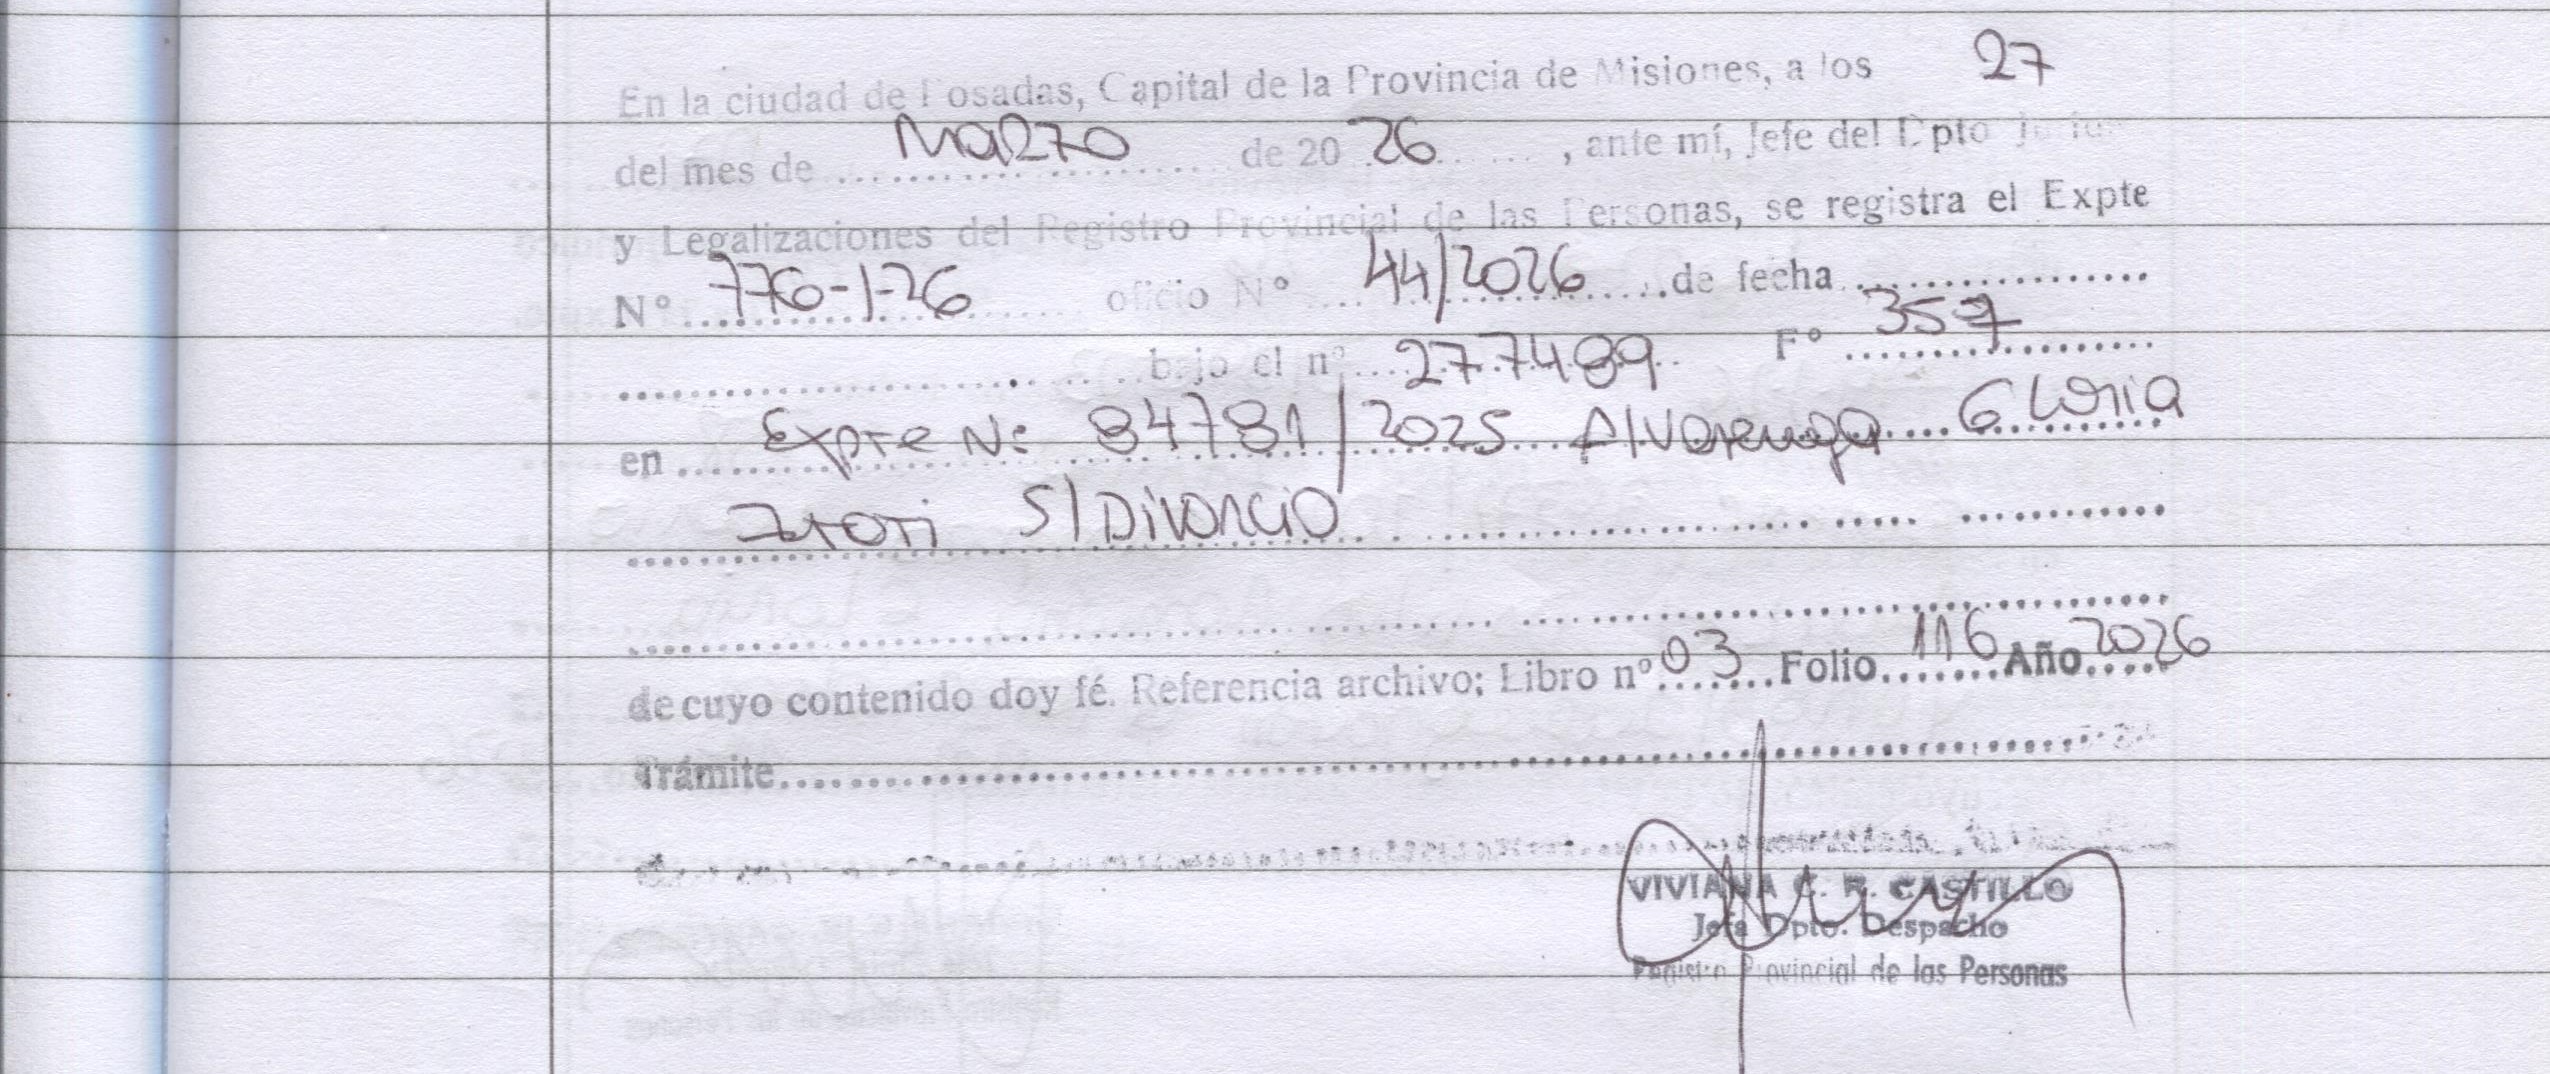 En la ciudad de Posadas, Capital de la Provincia de Misiones, a los 27
del mes de Marzo de 20 26, ante mí, Jefe del Dpto
y Legalizaciones del Registro Provincial de las Personas, se registra el Expte
N° 776-1-26 oficio N° 44/2026 de fecha
bajo el n° 277489 F° 357
en Expte N: 84781/2025 Alvarenga Gloria
S/Divorcio
de cuyo contenido doy fé. Referencia archivo; Libro nº 03 Folio 116 Año 2026
Trámite
VIVIANA C. R. CASTILLO
Jefa Dpto. Despacho
Registro Provincial de las Personas